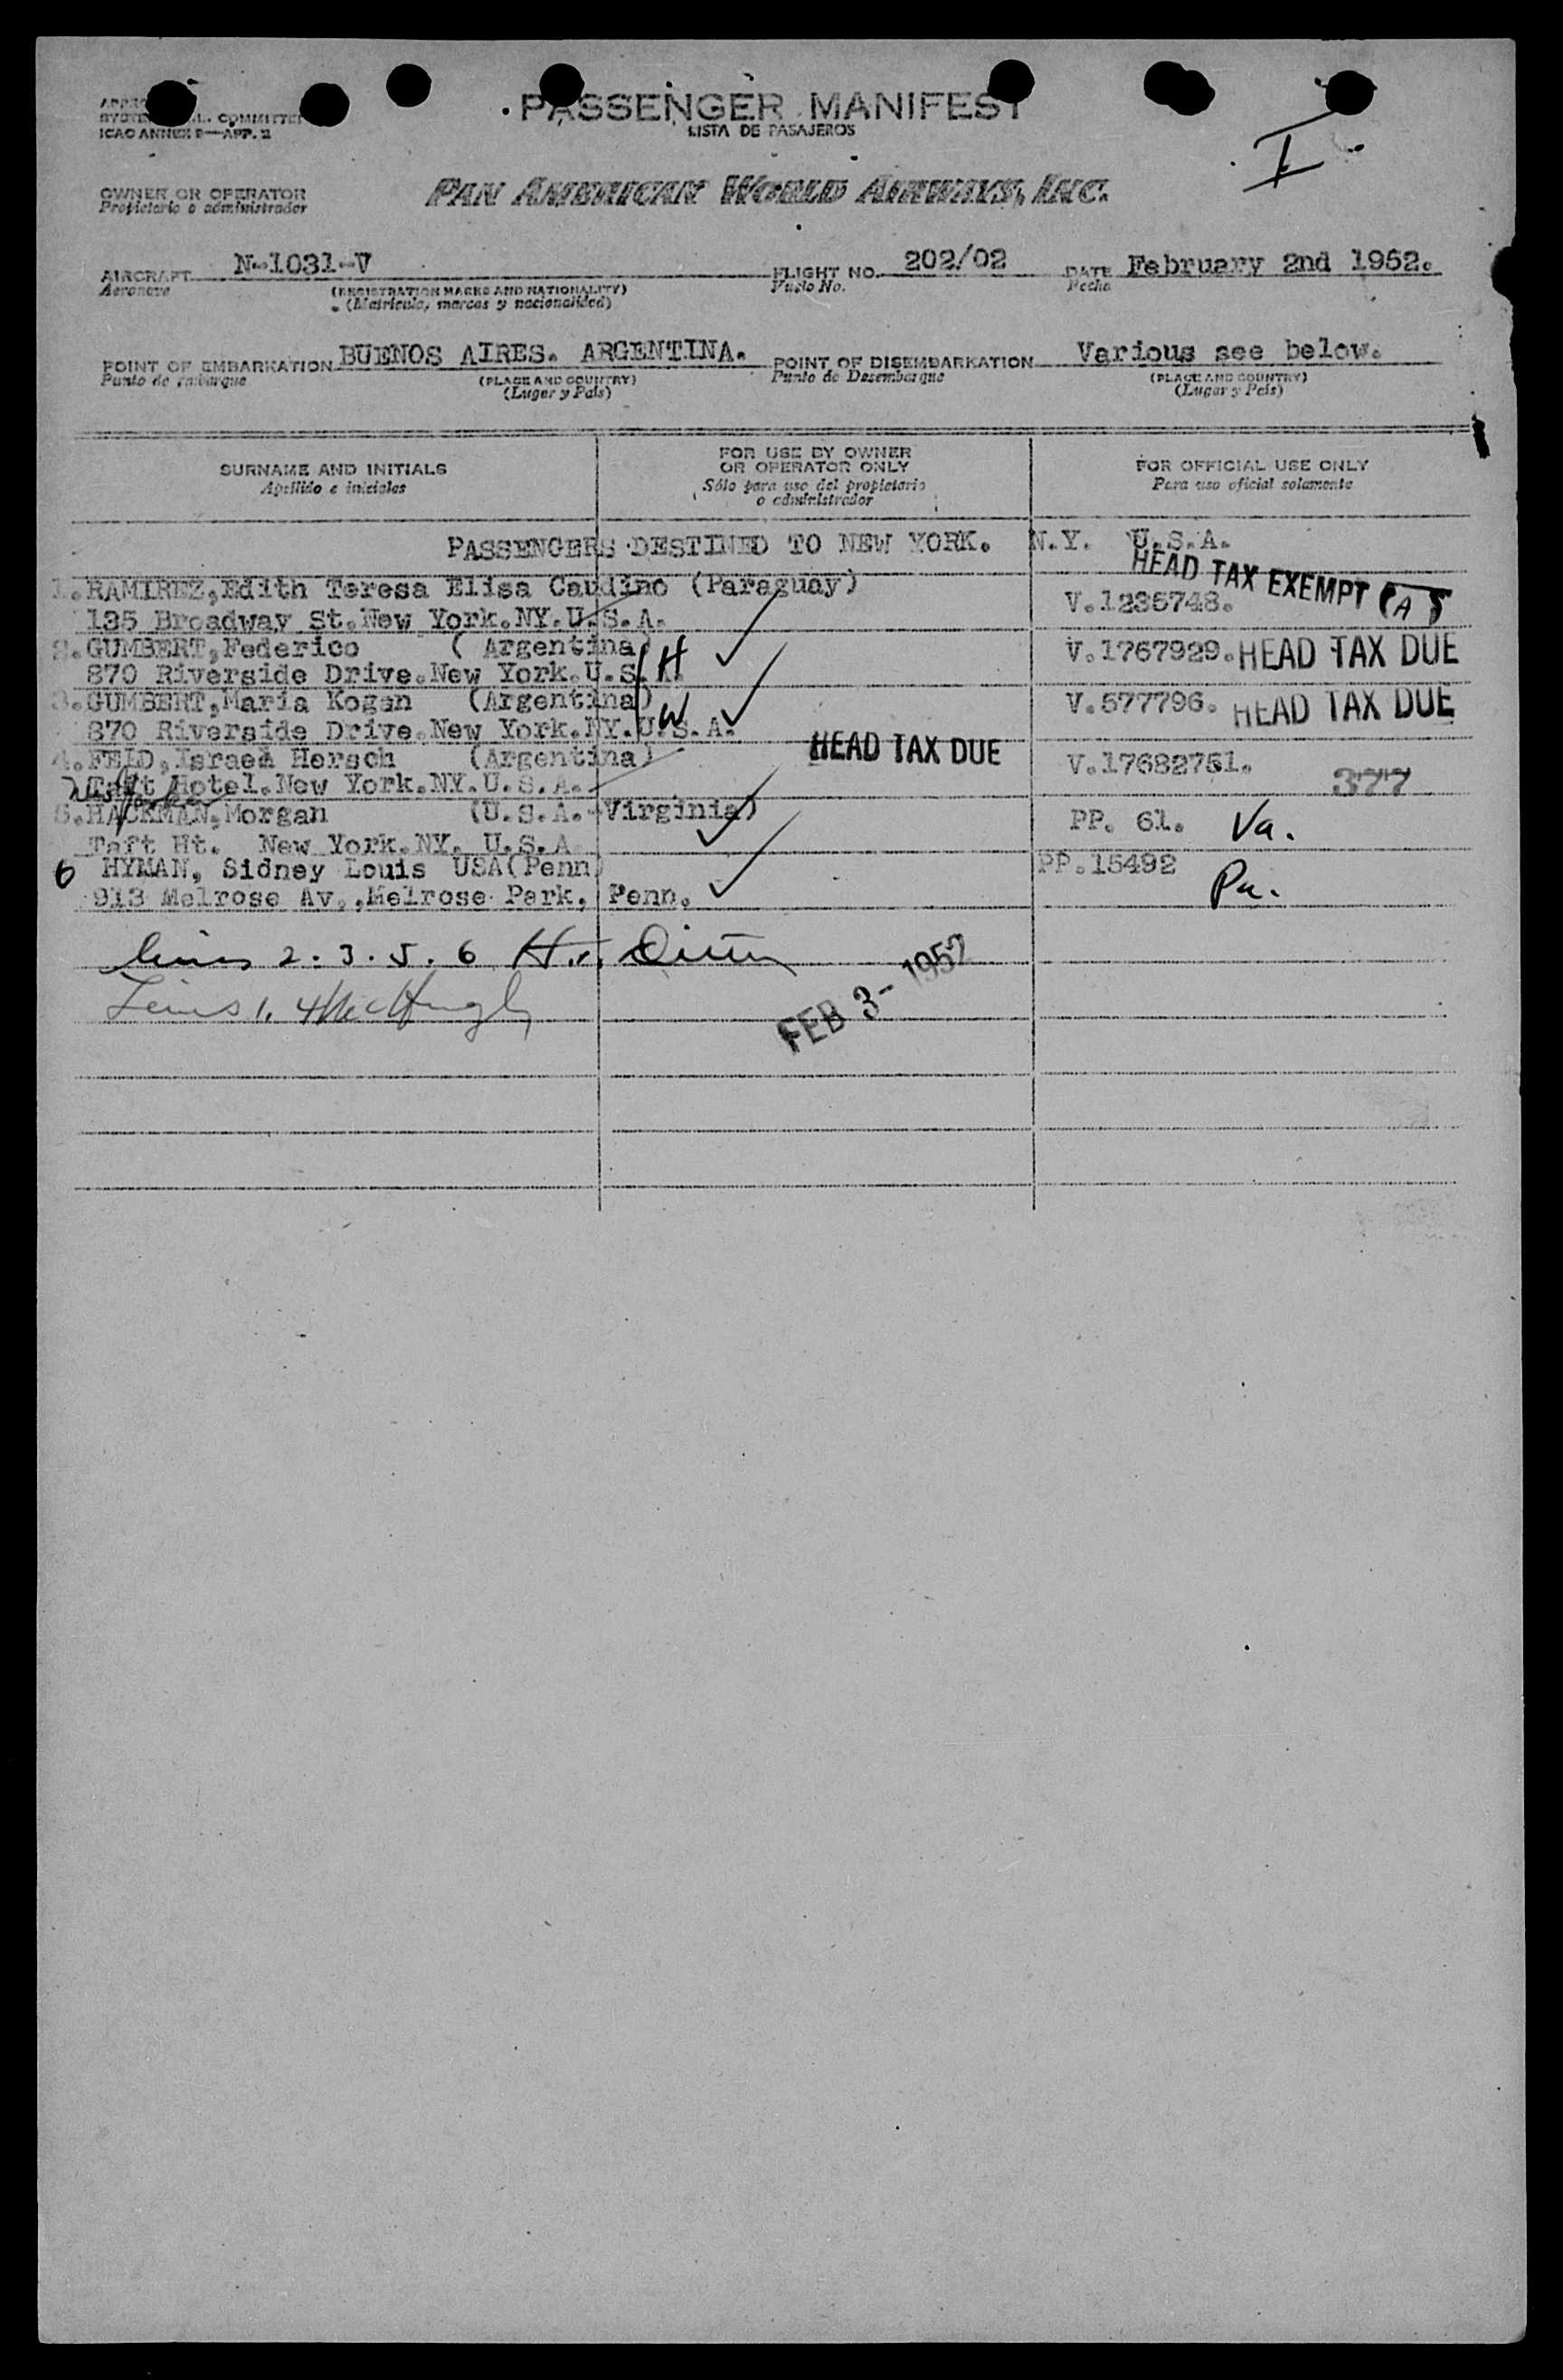 PASSENGER MANIFEST
LISTA DE PASAJEROS
COMMITTEE
ICAO ANNEX 9—APP. 2
I
OWNER OR OPERATOR
Propietario o administrador
PAN AMERICAN WORLD AIRWAYS, INC.
AIRCRAFT N-1031-V FLIGHT NO. 202/02 DATE February 2nd 1952.
Aeronave (REGISTRATION MARKS AND NATIONALITY) Vuelo No. Fecha
(Matricula, marcas y nacionalidad)
POINT OF EMBARKATION BUENOS AIRES. ARGENTINA. POINT OF DISEMBARKATION Various see below.
Punto de embarque (PLACE AND COUNTRY) Punto de Desembarque (PLACE AND COUNTRY)
(Lugar y País) (Lugar y País)
SURNAME AND INITIALS
Apellido e iniciales
FOR USE BY OWNER
OR OPERATOR ONLY
Sólo para uso del propietario
o administrador
FOR OFFICIAL USE ONLY
Para uso oficial solamente
PASSENGERS DESTINED TO NEW YORK. N.Y. U.S.A.
1.RAMIREZ,Edith Teresa Elisa Caudino (Paraguay) V.1235748. HEAD TAX EXEMPT
135 Broadway St.New York.NY.U.S.A.
2.GUMBERT,Federico ( Argentina) H V.1767929. HEAD TAX DUE
870 Riverside Drive.New York.U.S.A.
3.GUMBERT,Maria Kogan (Argentina) W V.577796. HEAD TAX DUE
870 Riverside Drive.New York.NY.U.S.A.
4.FELD,Israem Hersch (Argentina) HEAD TAX DUE V.17682751. 377
Taft Hotel.New York.NY.U.S.A.
5.HACKMAN,Morgan (U.S.A.-Virginia) PP. 61. Va.
Taft Ht. New York.NY. U.S.A
6 HYMAN, Sidney Louis USA(Penn) PP.15492 Pa.
913 Melrose Av.,Melrose Park, Penn.
Lines 2. 3. 5. 6
Lines 1. 4 McHugh
FEB 3- 1952